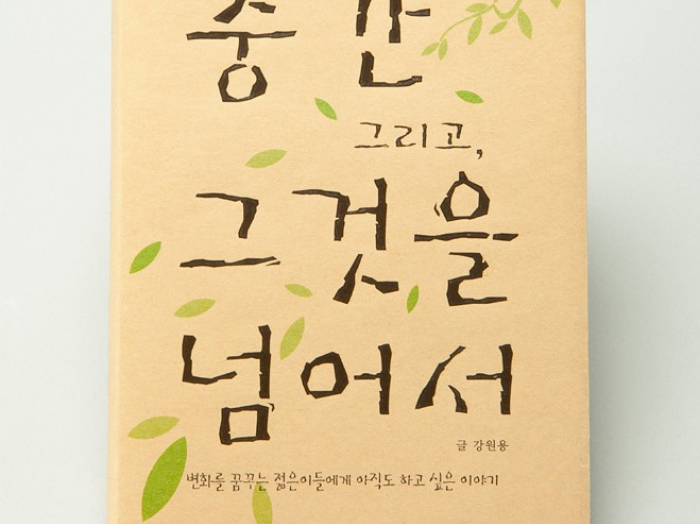 중간
그리고,
그것을
넘어서
글 강원용
변화를 꿈꾸는 젊은이들에게 아직도 하고 싶은 이야기